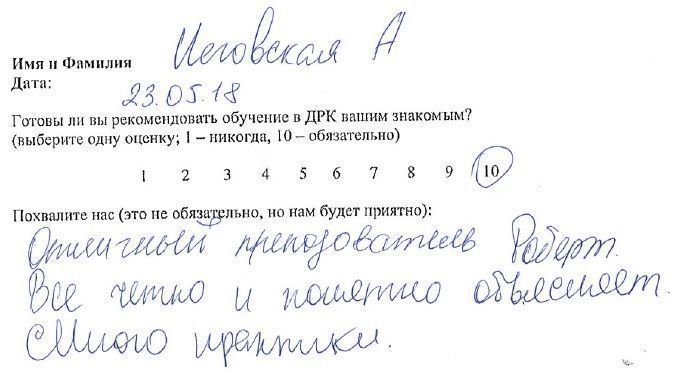 Имя и Фамилия Чеговская А
Дата:
23.05.18
Готовы ли вы рекомендовать обучение в ДРК вашим знакомым?
(выберите одну оценку; 1 – никогда, 10 – обязательно)
1 2 3 4 5 6 7 8 9 10
Похвалите нас (это не обязательно, но нам будет приятно):
Отличный преподователь Роберт.
Все четко и понятно объясняет.
Много практики.